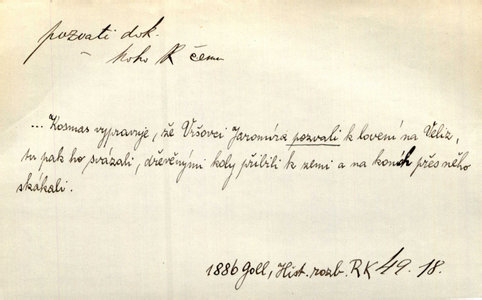 pozvati dok.
koho K čemu
... Kosmas vypravuje, že Vršovci Jaromíra pozvali k lovení na Veliz,
tu pak ho svázali, dřevěnými koly přibili k zemi a na koních přes něho
skákali.
1886 Goll, Hist. rozb. RK 49. 18.